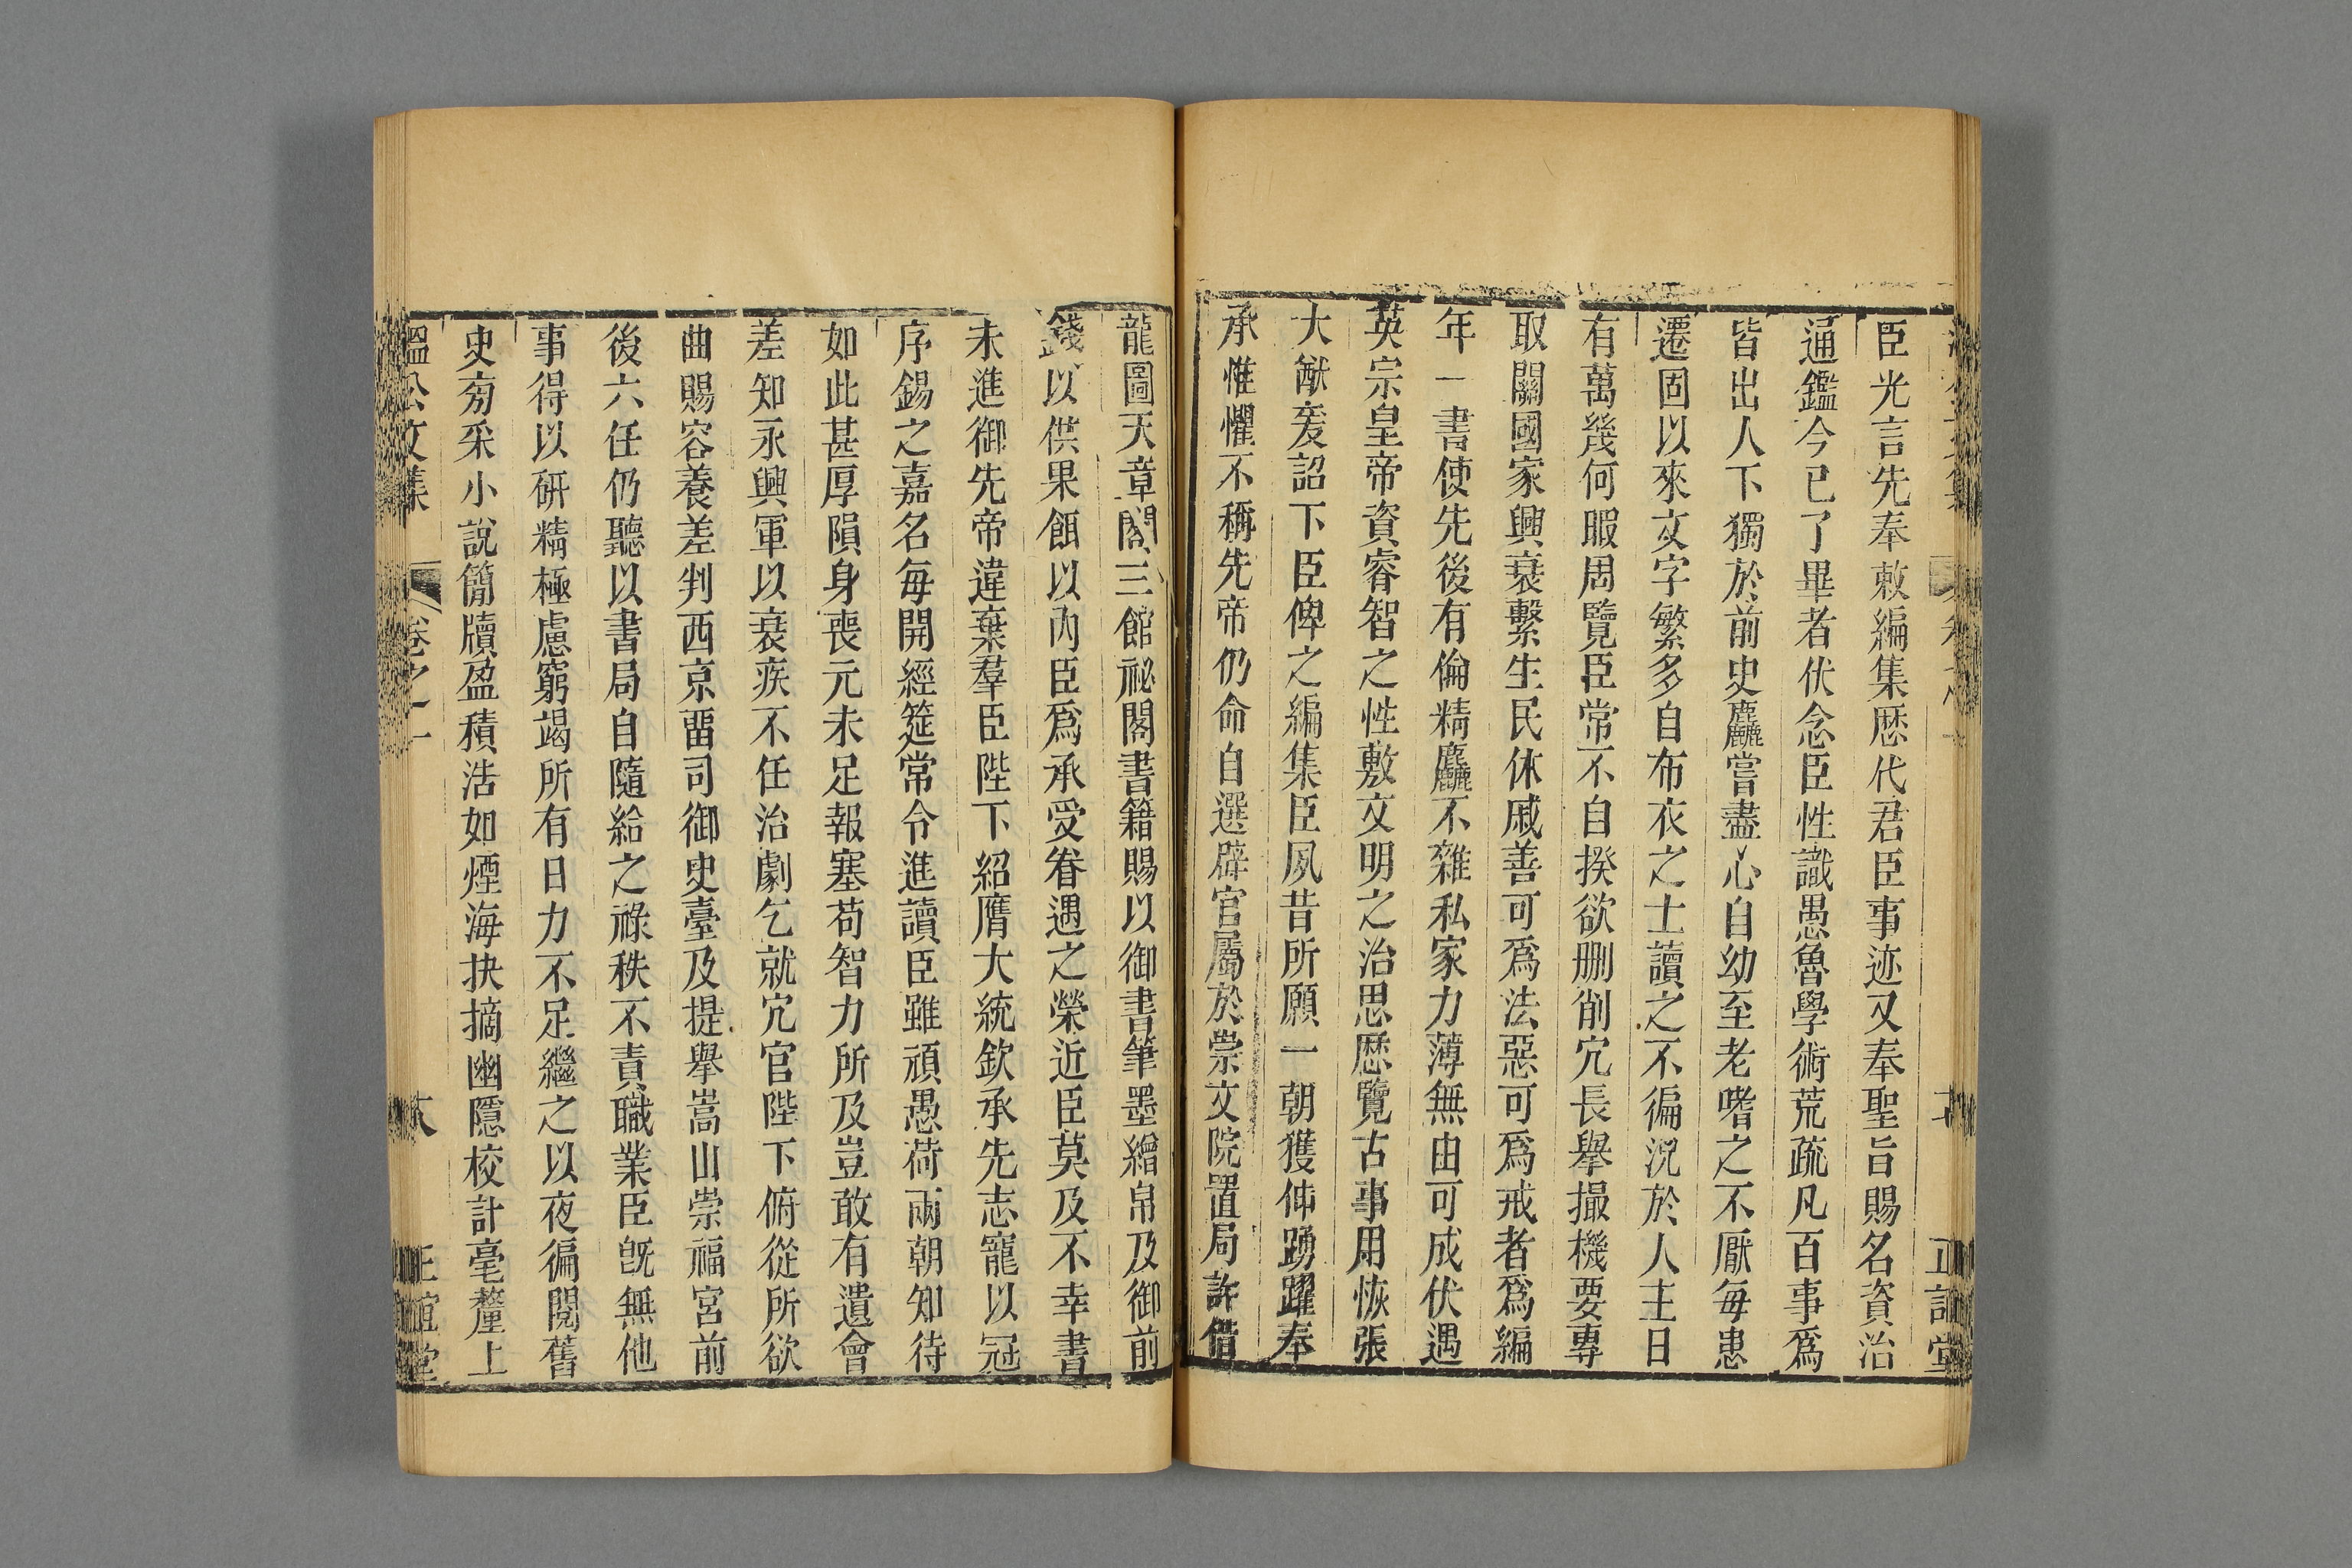 臣光言先奉敕編集歷代君臣事迹又奉聖旨賜名資治
通鑑今已了畢者伏念臣性識愚魯學術荒疏凡百事爲
皆出人下獨於前史麤嘗盡心自幼至老嗜之不厭每患
遷固以來文字繁多自布衣之士讀之不徧況於人主日
有萬幾何暇周覽臣常不自揆欲刪削冗長舉撮機要專
取關國家興衰繫生民休戚善可爲法惡可爲戒者爲編
年一書使先後有倫精麤不雜私家力薄無由可成伏遇
英宗皇帝資睿智之性敷文明之治思歷覽古事用恢張
大猷爰詔下臣俾之編集臣夙昔所願一朝獲伸踴躍奉
承惟懼不稱先帝仍命自選辟官屬於崇文院置局許借
龍圖天章閣三館祕閣書籍賜以御書筆墨繒帛及御前
錢以供果餌以內臣爲承受眷遇之榮近臣莫及不幸書
未進御先帝違棄羣臣陛下紹膺大統欽承先志寵以冠
序錫之嘉名每開經筵常令進讀臣雖頑愚荷兩朝知待
如此甚厚隕身喪元未足報塞苟智力所及豈敢有遺會
差知永興軍以衰疾不任治劇乞就冗官陛下俯從所欲
曲賜容養差判西京畱司御史臺及提舉嵩山崇福宮前
後六任仍聽以書局自隨給之祿秩不責職業臣旣無他
事得以研精極慮窮竭所有日力不足繼之以夜徧閱舊
史旁采小說簡牘盈積浩如煙海抉摘幽隱校計毫釐上
溫公文集 卷之一 正誼堂